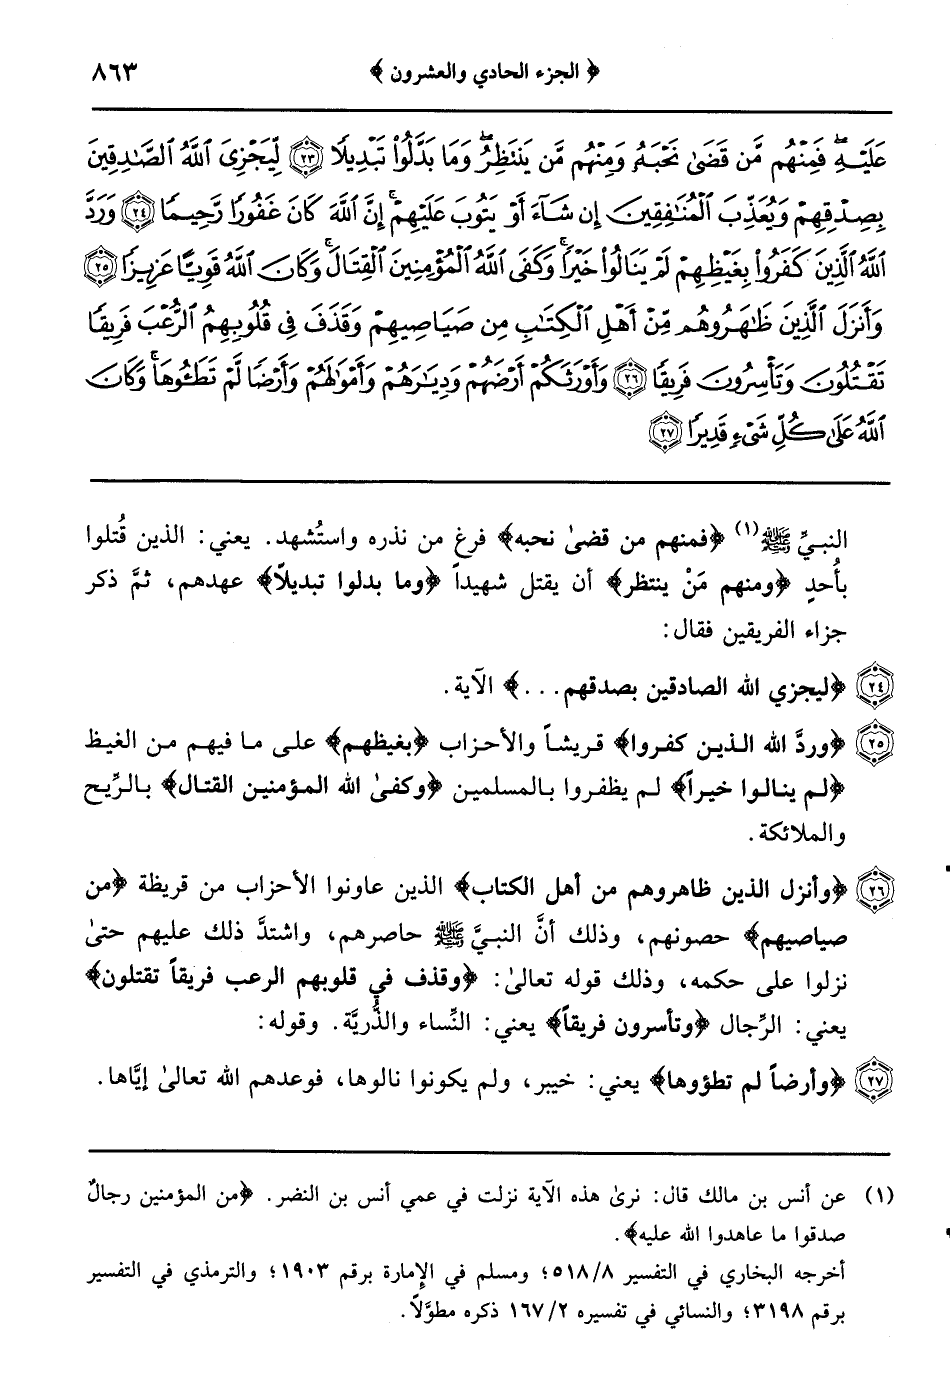 ﴿ الجزء الحادي والعشرون ﴾ ٨٦٣
عَلَيْهِ فَمِنْهُم مَّن قَضَىٰ نَحْبَهُ وَمِنْهُم مَّن يَنتَظِرُ وَمَا بَدَّلُوا۟ تَبْدِيلًا ٢٣ لِّيَجْزِىَ ٱللَّهُ ٱلصَّـٰدِقِينَ
بِصِدْقِهِمْ وَيُعَذِّبَ ٱلْمُنَـٰفِقِينَ إِن شَآءَ أَوْ يَتُوبَ عَلَيْهِمْ إِنَّ ٱللَّهَ كَانَ غَفُورًا رَّحِيمًا ٢٤ وَرَدَّ
ٱللَّهُ ٱلَّذِينَ كَفَرُوا۟ بِغَيْظِهِمْ لَمْ يَنَالُوا۟ خَيْرًا وَكَفَى ٱللَّهُ ٱلْمُؤْمِنِينَ ٱلْقِتَالَ وَكَانَ ٱللَّهُ قَوِيًّا عَزِيزًا ٢٥
وَأَنزَلَ ٱلَّذِينَ ظَـٰهَرُوهُم مِّنْ أَهْلِ ٱلْكِتَـٰبِ مِن صَيَاصِيهِمْ وَقَذَفَ فِى قُلُوبِهِمُ ٱلرُّعْبَ فَرِيقًا
تَقْتُلُونَ وَتَأْسِرُونَ فَرِيقًا ٢٦ وَأَوْرَثَكُمْ أَرْضَهُمْ وَدِيَـٰرَهُمْ وَأَمْوَٰلَهُمْ وَأَرْضًا لَّمْ تَطَـُٔوهَا وَكَانَ
ٱللَّهُ عَلَىٰ كُلِّ شَىْءٍ قَدِيرًا ٢٧
النبيِّ ﷺ(١) ﴿فمنهم من قضىٰ نحبه﴾ فرغ من نذره واستُشهد. يعني: الذين قُتلوا
بأُحدٍ ﴿ومنهم مَنْ ينتظر﴾ أن يقتل شهيداً ﴿وما بدلوا تبديلاً﴾ عهدهم، ثمَّ ذكر
جزاء الفريقين فقال:
٢٤ ﴿ليجزي الله الصادقين بصدقهم...﴾ الآية.
٢٥ ﴿وردَّ الله الذين كفروا﴾ قريشاً والأحزاب ﴿بغيظهم﴾ على ما فيهم من الغيظ
﴿لم ينالوا خيراً﴾ لم يظفروا بالمسلمين ﴿وكفىٰ الله المؤمنين القتال﴾ بالرِّيح
والملائكة.
٢٦ ﴿وأنزل الذين ظاهروهم من أهل الكتاب﴾ الذين عاونوا الأحزاب من قريظة ﴿من
صياصيهم﴾ حصونهم، وذلك أنَّ النبيَّ ﷺ حاصرهم، واشتدَّ ذلك عليهم حتىٰ
نزلوا على حكمه، وذلك قوله تعالىٰ: ﴿وقذف في قلوبهم الرعب فريقاً تقتلون﴾
يعني: الرِّجال ﴿وتأسرون فريقاً﴾ يعني: النِّساء والذُّريَّة. وقوله:
٢٧ ﴿وأرضاً لم تطؤوها﴾ يعني: خيبر، ولم يكونوا نالوها، فوعدهم الله تعالىٰ إيَّاها.
(١) عن أنس بن مالك قال: نرىٰ هذه الآية نزلت في عمي أنس بن النضر. ﴿من المؤمنين رجالٌ
صدقوا ما عاهدوا الله عليه﴾.
أخرجه البخاري في التفسير ٥١٨/٨؛ ومسلم في الإمارة برقم ١٩٠٣؛ والترمذي في التفسير
برقم ٣١٩٨؛ والنسائي في تفسيره ١٦٧/٢ ذكره مطوَّلاً.